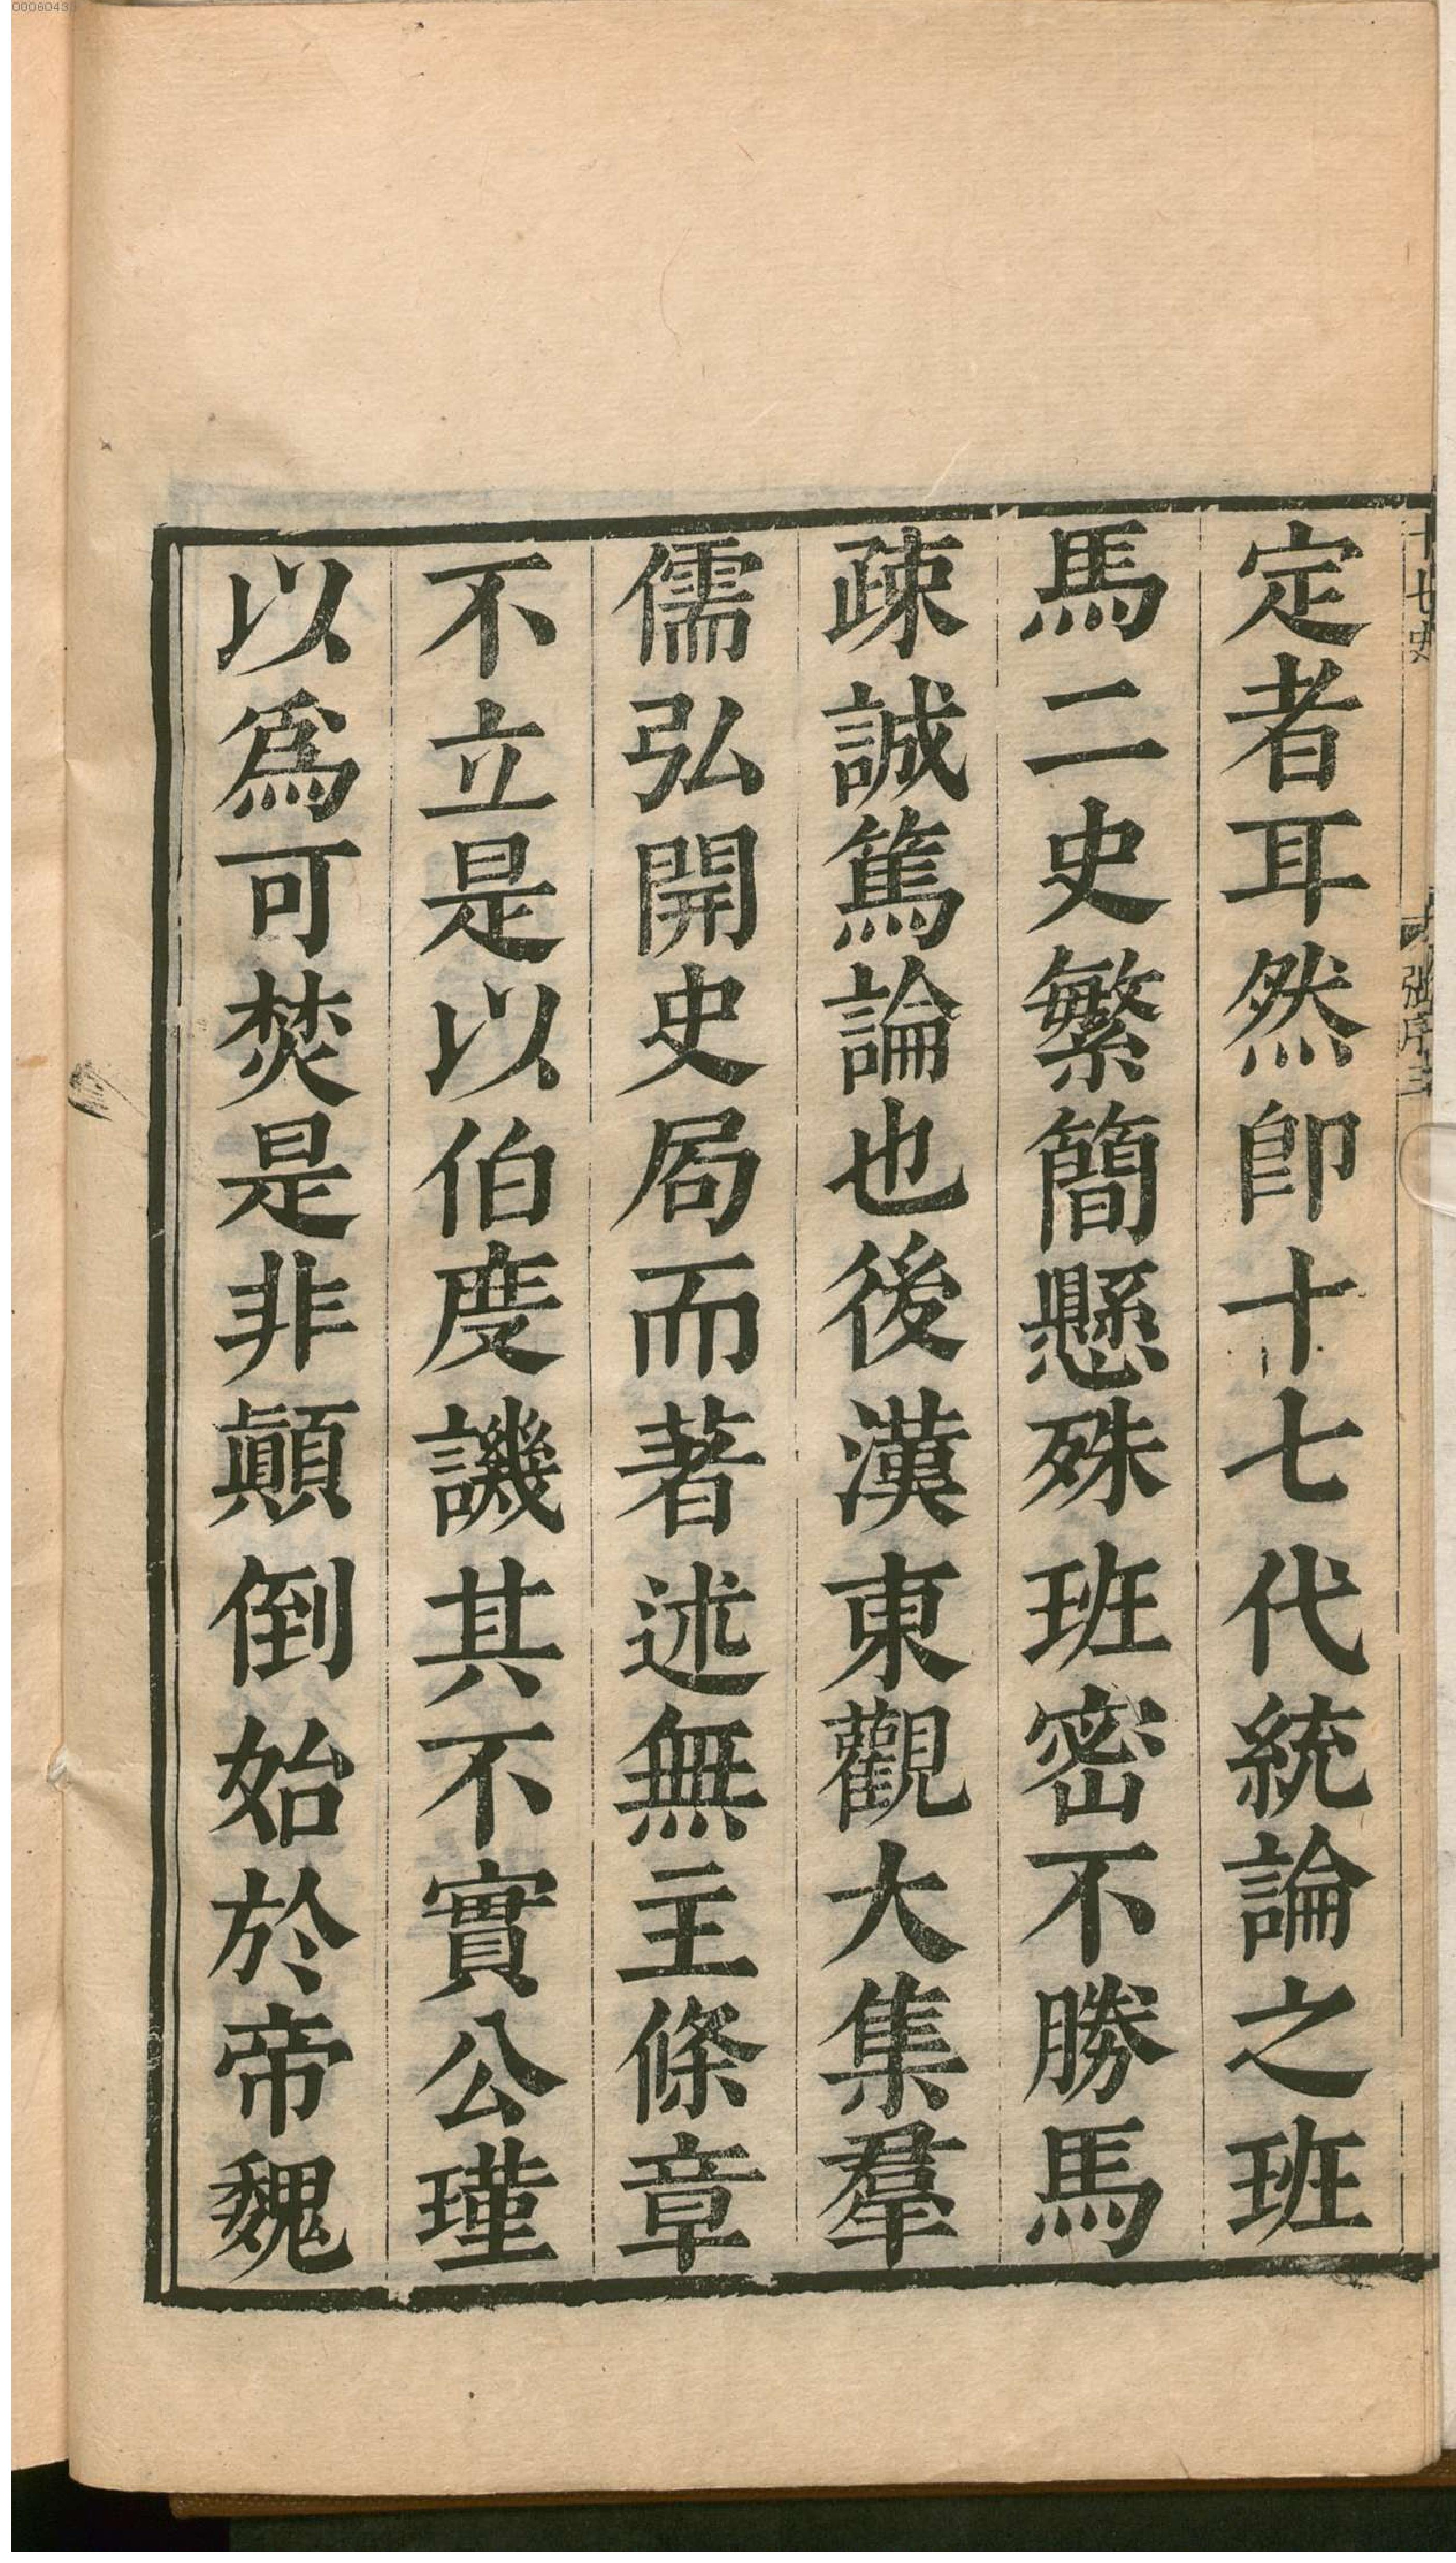 定者耳然卽十七代統論之班
馬二史繁簡懸殊班密不勝馬
疎誠篤論也後漢東觀大集羣
儒弘開史局而著述無主條章
不立是以伯度譏其不實公瑾
以爲可焚是非顚倒始於帝魏
十七史
張序三
00060433